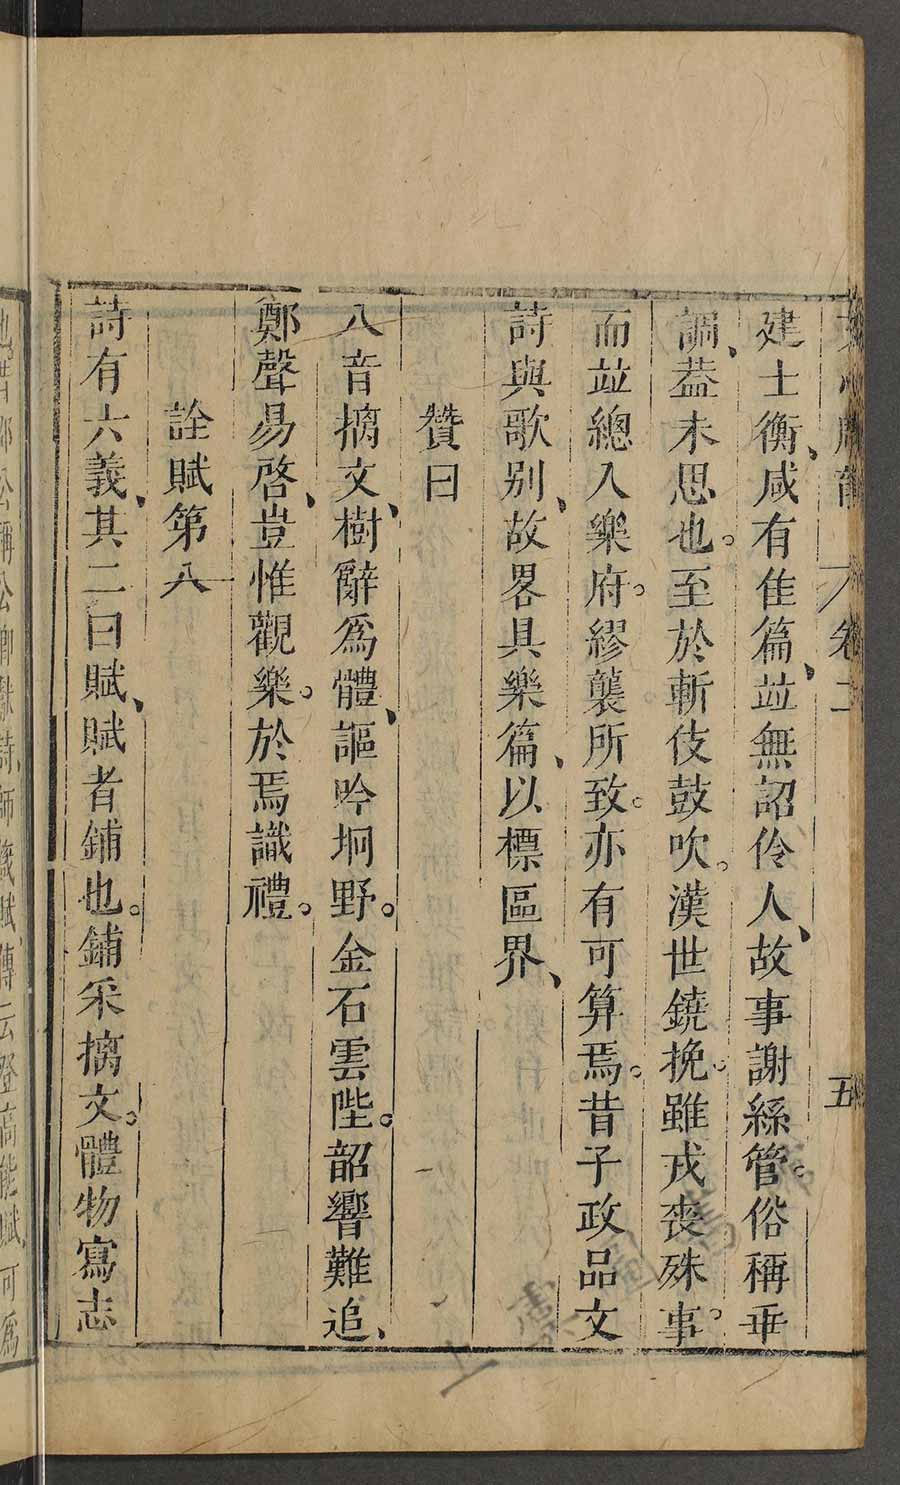 卷二　五
建士衡、咸有隹篇、竝無詔伶人、故事謝絲管。俗稱乖
調、葢未思也。至於斬伎鼓吹。漢世鐃挽。雖戎喪殊事。
而竝總入樂府。繆襲所致。亦有可算焉。昔子政品文
詩與歌别、故畧具樂篇、以標區界、
贊曰
八音摛文、樹辭爲體、謳吟坰野。金石雲陛。韶響難追、
鄭聲易啓、豈惟觀樂。於焉識禮。
詮賦第八
詩有六義、其二曰賦、賦者鋪也。鋪采摛文。體物寫志
公稱公卿獻詩、師箴賦、傳云登高能賦、可爲